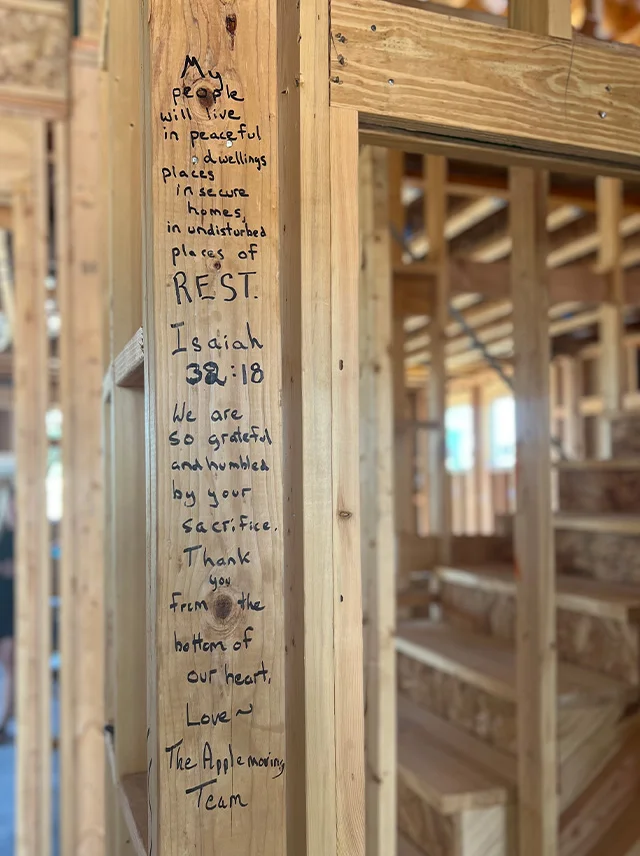 My
people
will live
in peaceful
dwellings
places
in secure
homes,
in undisturbed
places of
REST.
Isaiah
32:18
We are
so grateful
and humbled
by your
sacrifice.
Thank
you
from the
bottom of
our heart,
Love~
The Applemoving
Team